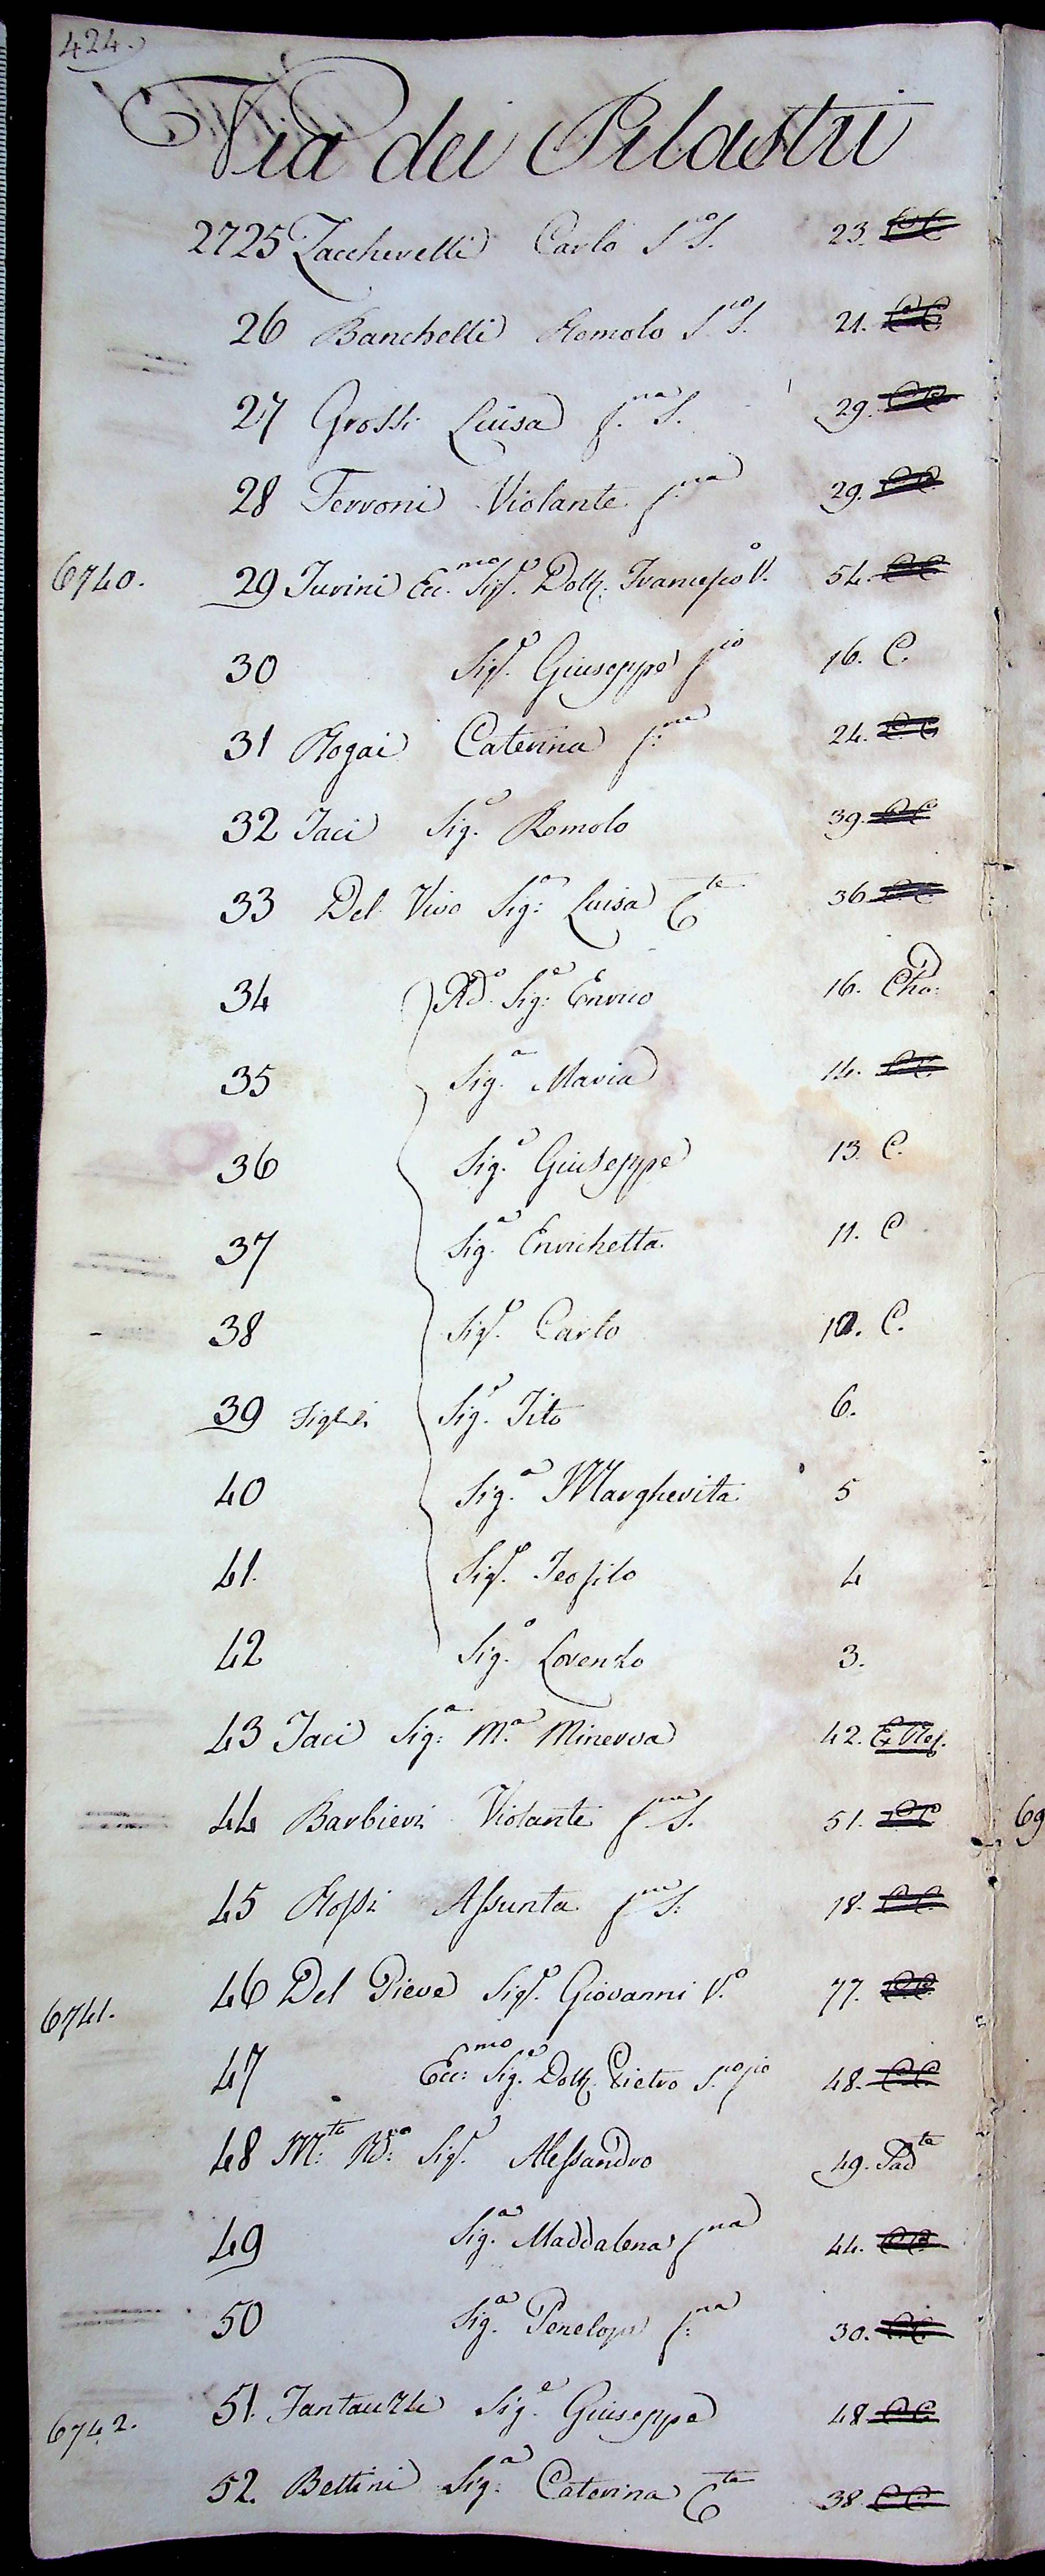 424.
Via dei Pilastri
2725 Zaccherelli Carlo S.o S. 23. C.C.
26 Banchelli Romolo S.o S. 21. C.C.
27 Grossi Luisa f.na S. 29. C.C.
28 Ferroni Violante f.na 29. C.C.
6740. 29 Turini Ecc.mo Sig.e Dott. Francesco V.o 54. C.C.
30 Sig.e Giuseppe f.io 16. C.
31 Rogai Caterina f.na 24. C.C.
32 Taci Sig.e Romolo 39. C.C.
33 Del Vivo Sig.a Luisa C.te 36. C.C.
34 Rd.o Sig.e Enrico 16. Cho:
35 Sig.a Maria 14. C.C.
36 Sig.e Giuseppe 13. C.
37 Sig.a Enrichetta 11. C
38 Sig.e Carlo 10. C.
39 Figli Sig.e Tito 6.
40 Sig.a Margherita 5
41. Sig.e Teofilo 4
42 Sig.e Lorenzo 3.
43 Taci Sig.a M.a Minerva 42.
44 Barbieri Violante f.na S. 51. C.C.
45 Rossi Assunta f.na S. 18. C.C.
6741. 46 Del Pieve Sig.e Giovanni V.o 77. C.C.
47 Ecc.mo Sig.e Dott. Pietro S.o f.io 48. C.C.
48 M.to Rd.o Sig.e Alessandro 49.
49 Sig.a Maddalena f.na 44. C.C.
50 Sig.a Penelope f.na 30. C.C.
6742. 51. Sig.e Giuseppe 48. C.C.
52. Bettini Sig.a Caterina C.te 38. C.C.
69